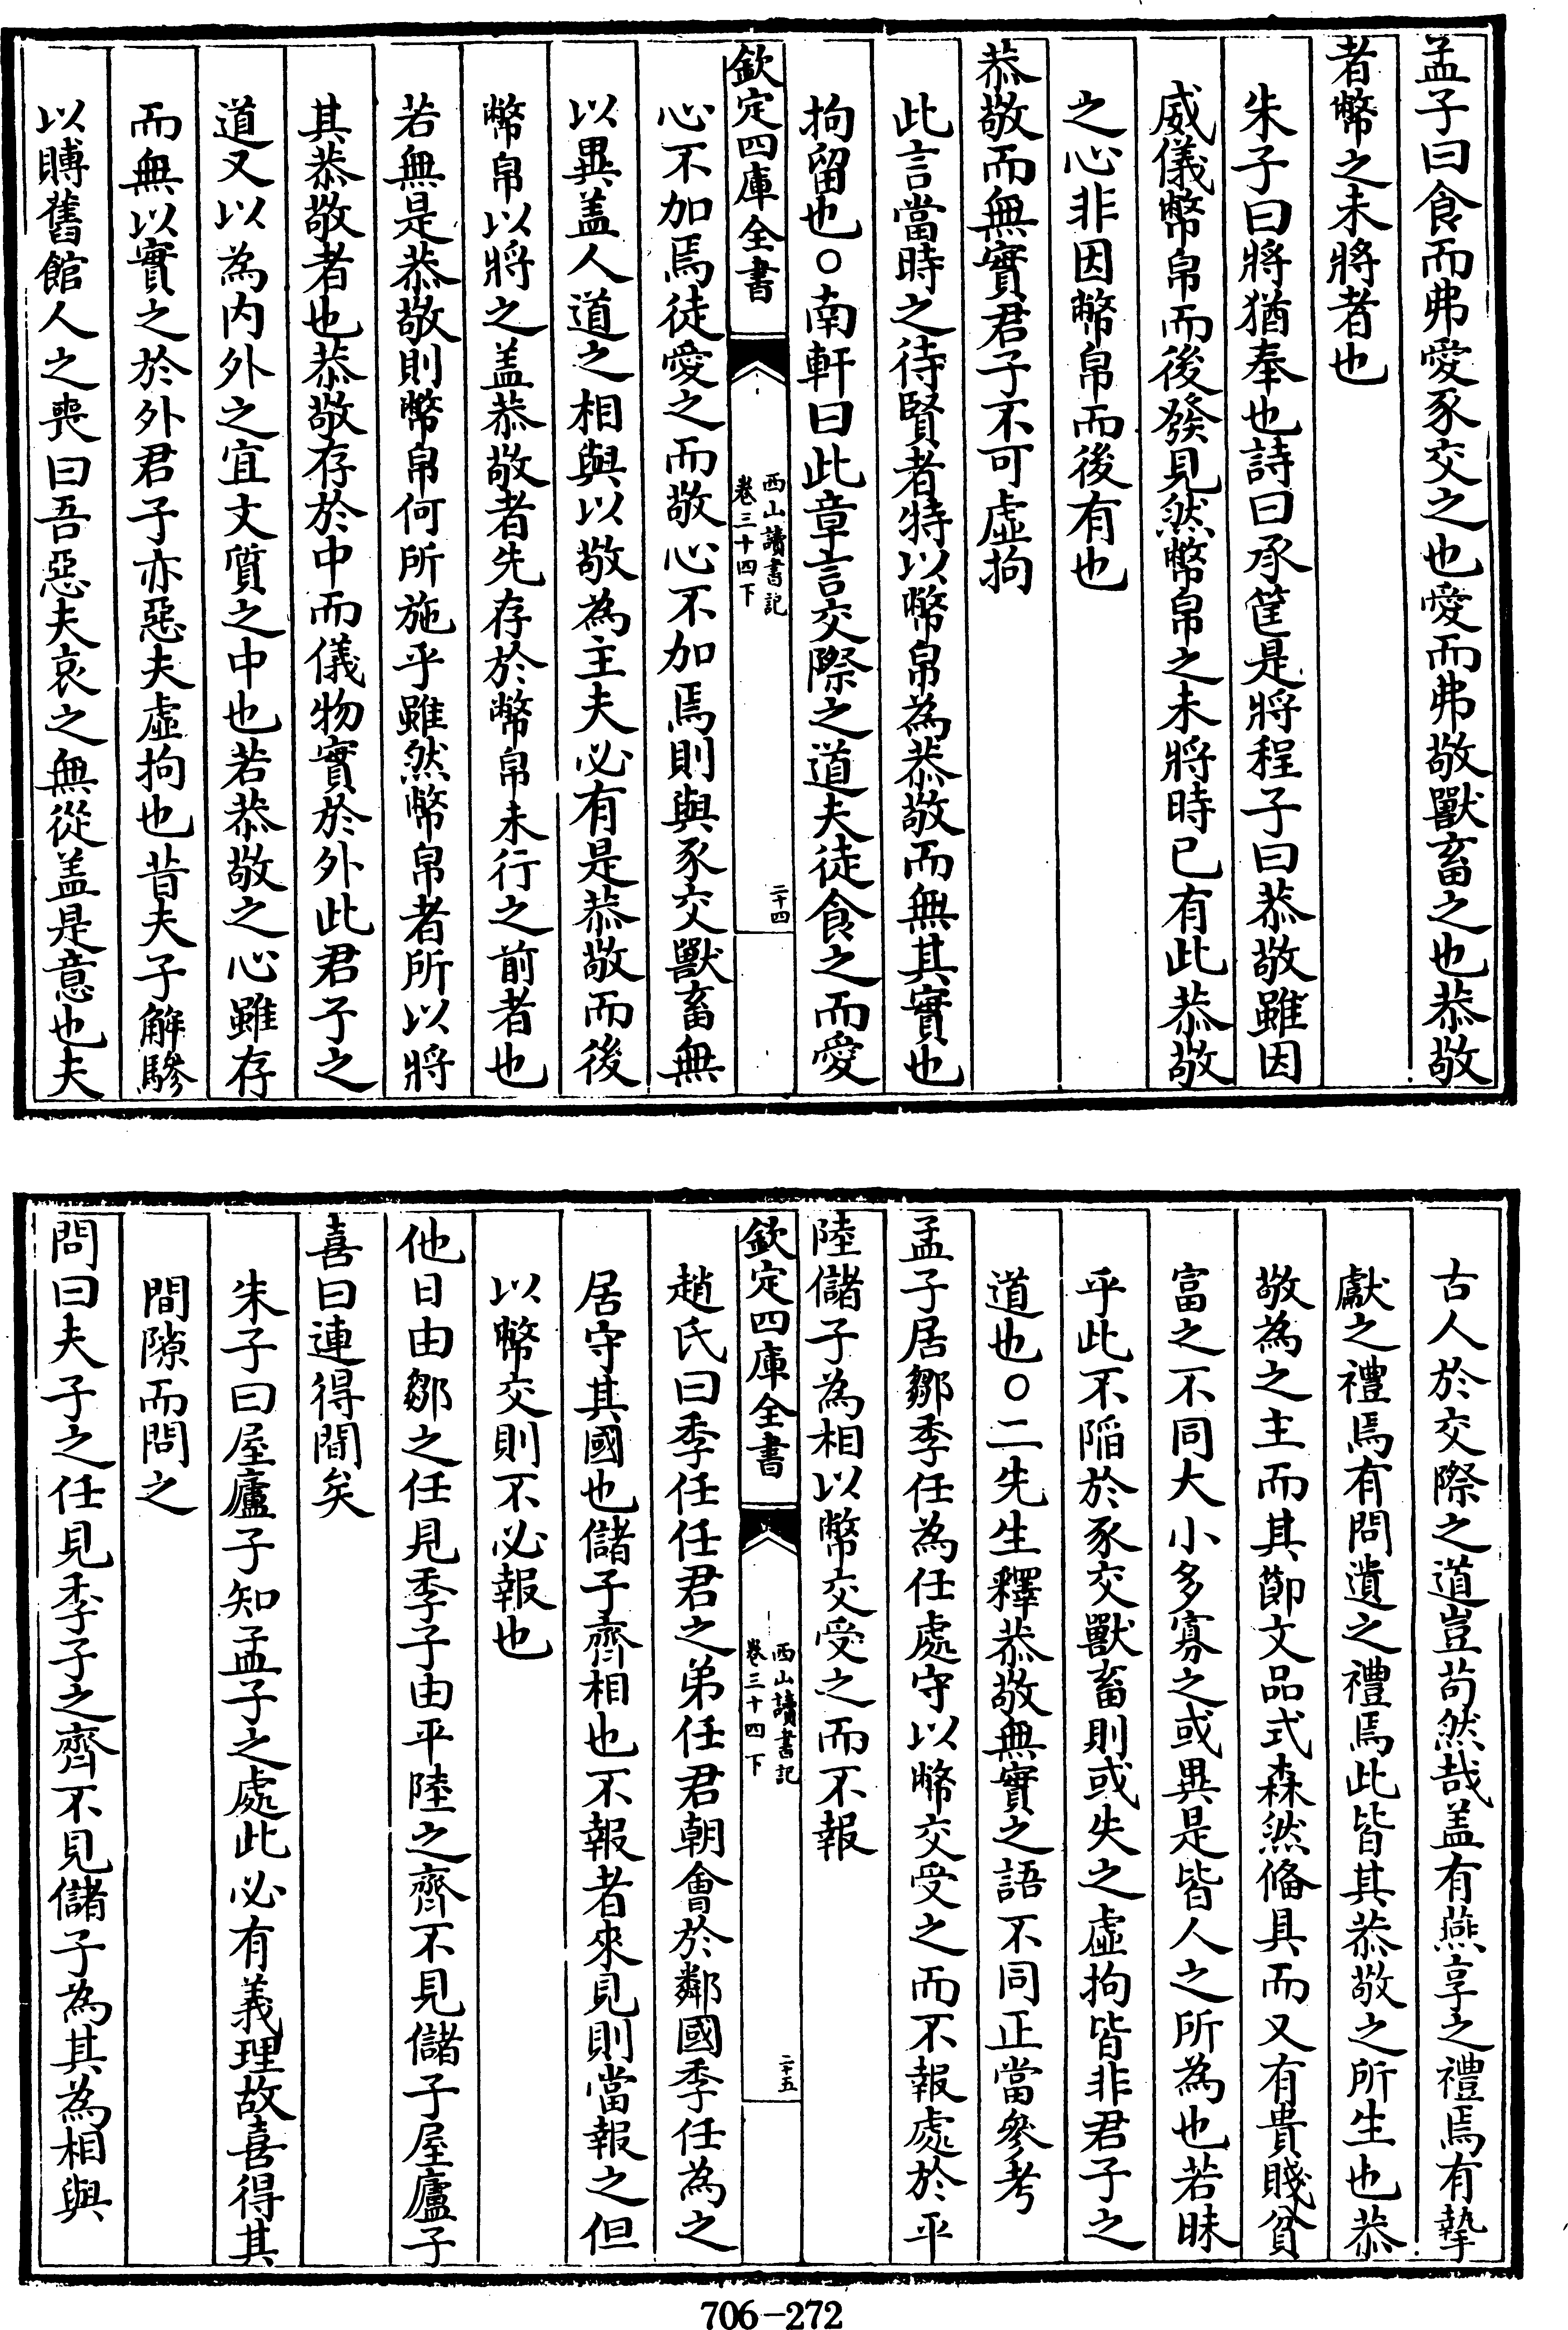 孟子曰食而弗愛豕交之也愛而弗敬獸畜之也恭敬
者幣之未將者也
朱子曰將猶奉也詩曰承筐是將程子曰恭敬雖因
威儀幣帛而後發見然幣帛之未將時已有此恭敬
之心非因幣帛而後有也
恭敬而無實君子不可虛拘
此言當時之待賢者特以幣帛為恭敬而無其實也
拘留也○南軒曰此章言交際之道夫徒食之而愛
欽定四庫全書
西山讀書記
卷三十四下
二十四
心不加焉徒愛之而敬心不加焉則與豕交獸畜無
以異盖人道之相與以敬為主夫必有是恭敬而後
幣帛以將之盖恭敬者先存於幣帛未行之前者也
若無是恭敬則幣帛何所施乎雖然幣帛者所以將
其恭敬者也恭敬存於中而儀物實於外此君子之
道又以為内外之宜文質之中也若恭敬之心雖存
而無以實之於外君子亦惡夫虛拘也昔夫子解驂
以賻舊館人之喪曰吾惡夫哀之無從盖是意也夫
古人於交際之道豈茍然哉盖有燕享之禮焉有摯
獻之禮焉有問遺之禮焉此皆其恭敬之所生也恭
敬為之主而其節文品式森然脩具而又有貴賤貧
富之不同大小多寡之或異是皆人之所為也若昧
乎此不陷於豕交獸畜則或失之虛拘皆非君子之
道也○二先生釋恭敬無實之語不同正當參考
孟子居鄒季任為任處守以幣交受之而不報處於平
陸儲子為相以幣交受之而不報
欽定四庫全書
西山讀書記
卷三十四下
二十五
趙氏曰季任任君之弟任君朝會於鄰國季任為之
居守其國也儲子齊相也不報者來見則當報之但
以幣交則不必報也
他日由鄒之任見季子由平陸之齊不見儲子屋廬子
喜曰連得間矣
朱子曰屋廬子知孟子之處此必有義理故喜得其
間隙而問之
問曰夫子之任見季子之齊不見儲子為其為相與
706-272